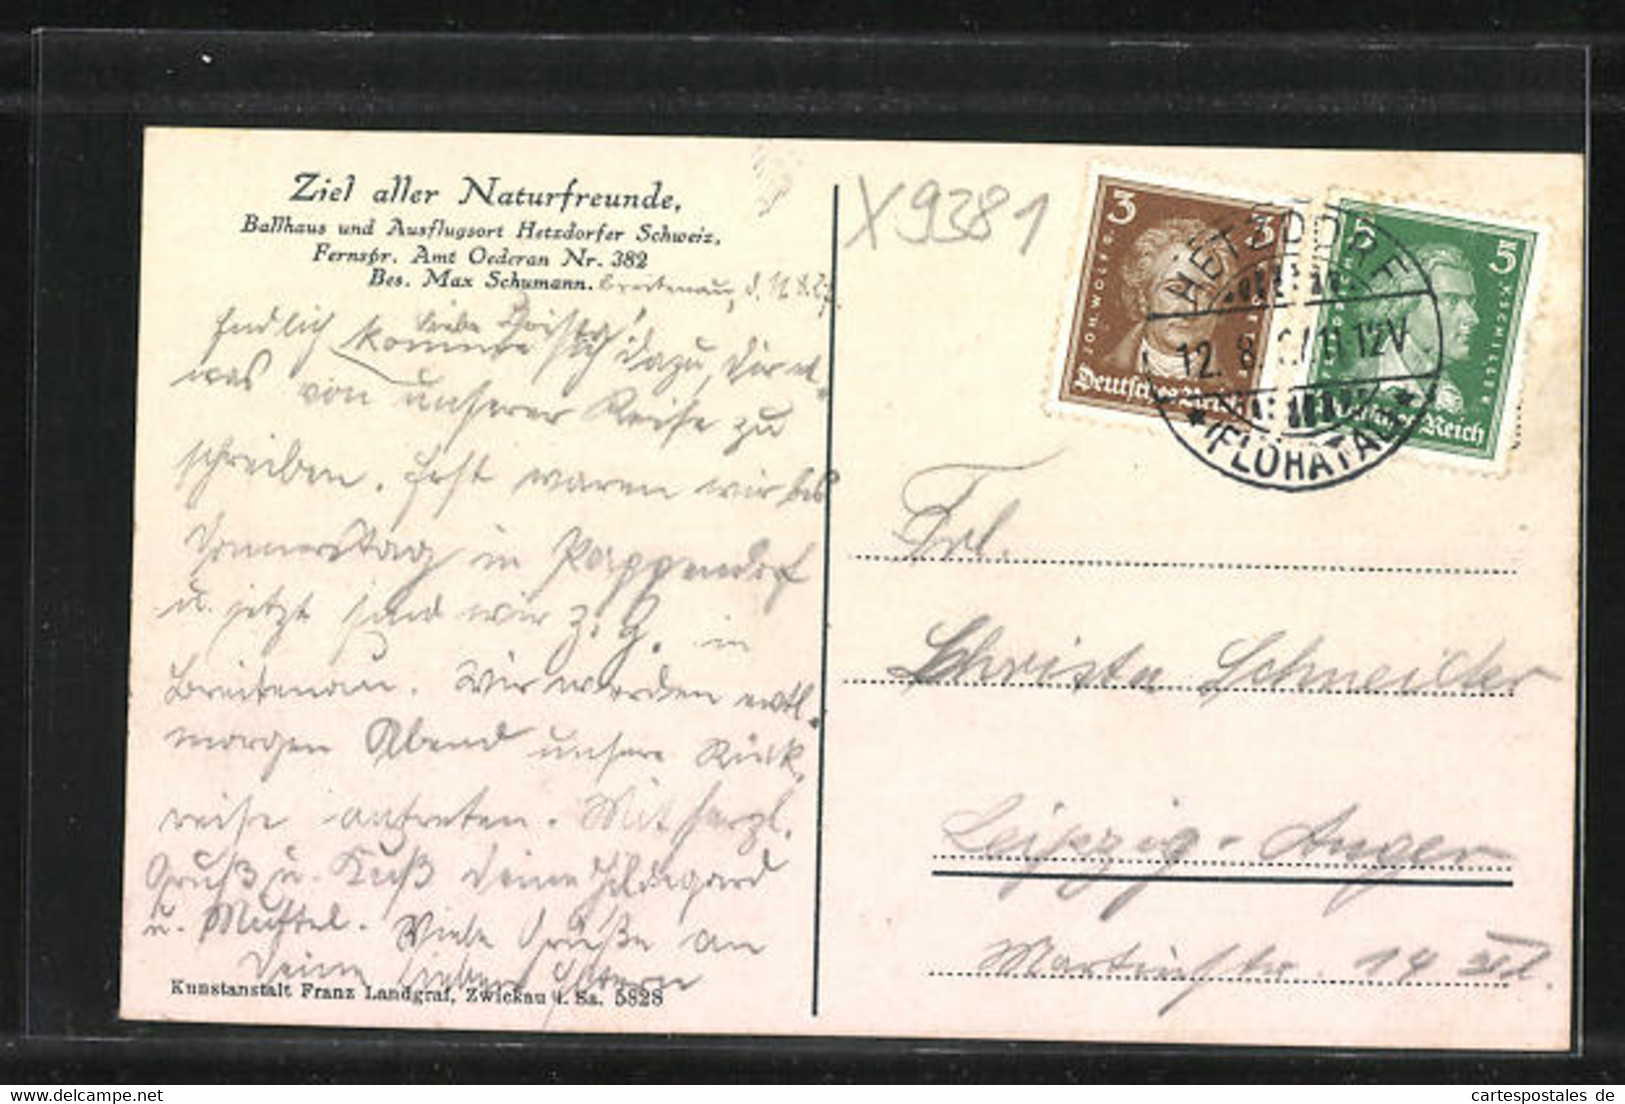 Ziel aller Naturfreunde.
Ballhaus und Ausflugsort Hetzdorfer Schweiz.
Fernspr. Amt Oederan Nr. 382
Bes. Max Schumann.
Breitenau, d.
Liebe Christa!
Endlich komme ich dazu, Dir et-
was von unserer Reise zu
schreiben. Erst waren wir bis
Donnerstag in Pappendorf
u. jetzt sind wir z. Z. in
Breitenau. Wir werden evtl.
morgen Abend unsere Rück-
reise antreten. Mit herzl.
Gruß u. Kuß Deine Hildegard
u. Muttel. Viele Grüße an
Deine lieben Eltern
Kunstanstalt Franz Landgraf, Zwickau i. Sa. 5828
X9381
3 3
JOH. WOLFG. GOETHE
Deutsches Reich
5 5
FRIEDRICH V. SCHILLER
Deutsches Reich
HETZDORF
12. 8. 11-12V
* (FLÖHATAL) *
Frl.
Christa Schneider
Leipzig-Anger
Martinstr. 14 III l.
cartespostales de